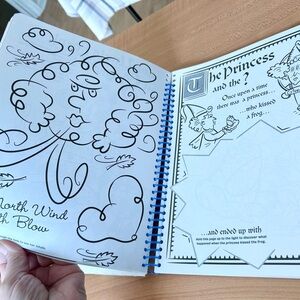 North Wind
Blow
The Princess
and the ?
Once upon a time
there was a princess...
...who kissed
a frog...
...and ended up with
Hold this page up to the light to discover what
happened when the princess kissed the frog.